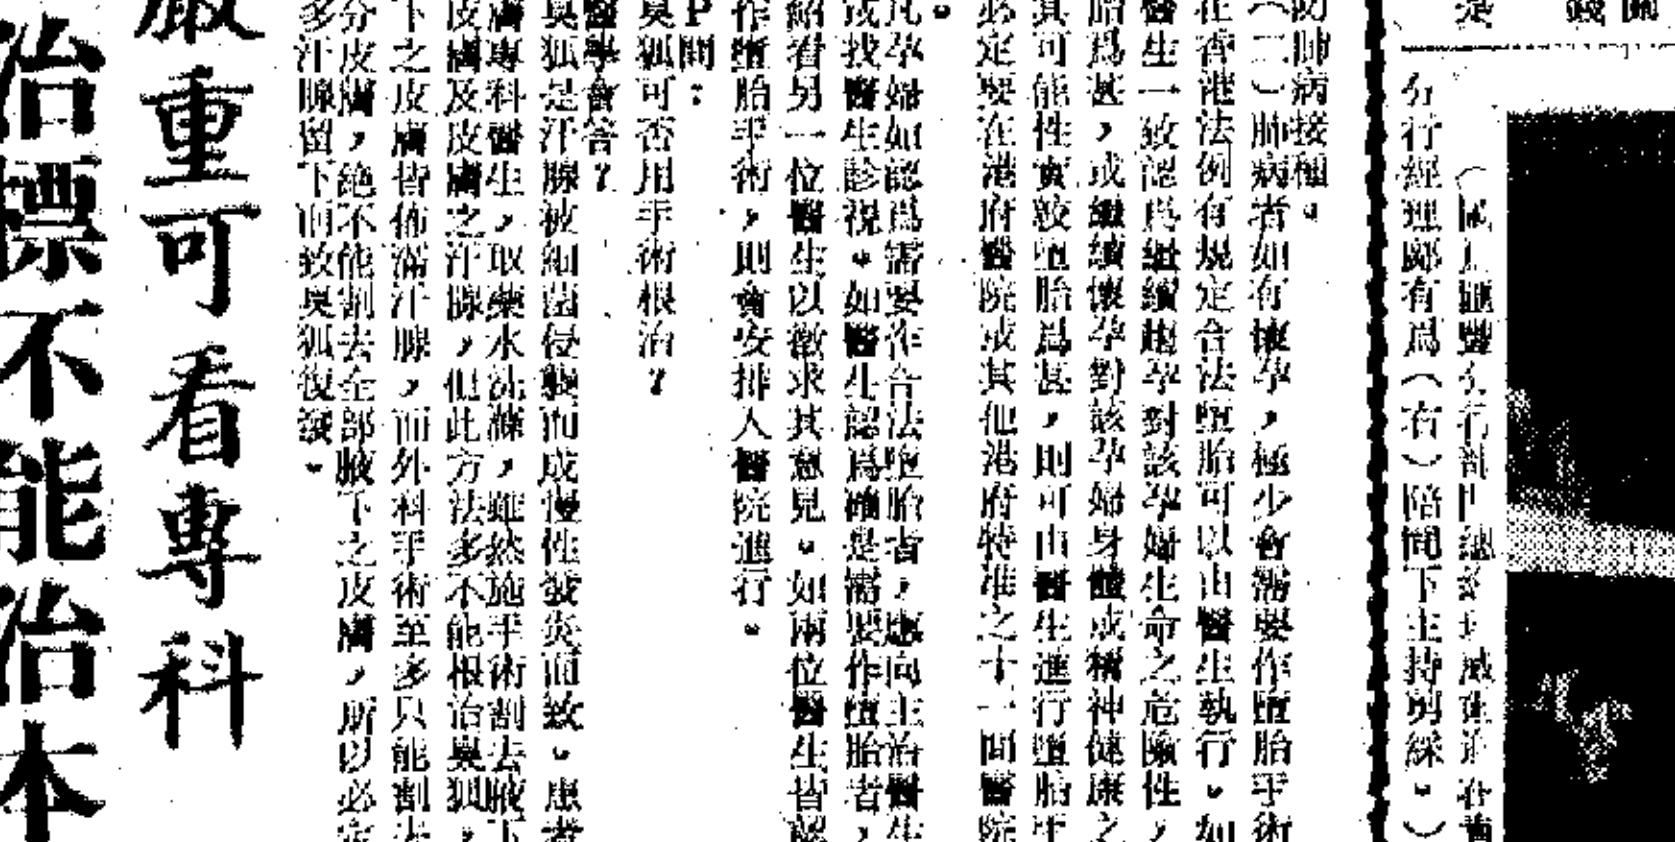 是
分行經理鄺有爲（右）陪同下主持剪綵。）
防肺病接種。
（二）肺病者如有懷孕，極少會需要作墮胎手術
在香港法例有規定合法墮胎可以由醫生執行。如
醫生一致認爲繼續懷孕對該孕婦生命之危險性，
胎爲甚，或繼續懷孕對該孕婦身體或精神健康之
其可能性實較墮胎爲甚，則可由醫生進行墮胎手
必定要在港府醫院或其他港府特准之十一間醫院
。
凡孕婦如認爲需要作合法墮胎者，應向主治醫生
或找醫生診視。如醫生認爲確是需要作墮胎者，
紹看另一位醫生以徵求其意見。如兩位醫生皆認
作墮胎手術，則會安排入醫院進行。
P問：
臭狐可否用手術根治？
醫學會答？
臭狐是汗腺被細菌侵襲而成慢性發炎而致。患者
膚專科醫生，取藥水洗滌，雖然施手術割去腋下
皮膚及皮膚之汗腺，但此方法多不能根治臭狐，
下之皮膚皆佈滿汗腺，而外科手術至多只能割去
分皮膚，絕不能割去全部腋下之皮膚，所以必定
多汗腺留下而致臭狐復發。
嚴重可看專科
治標不能治本